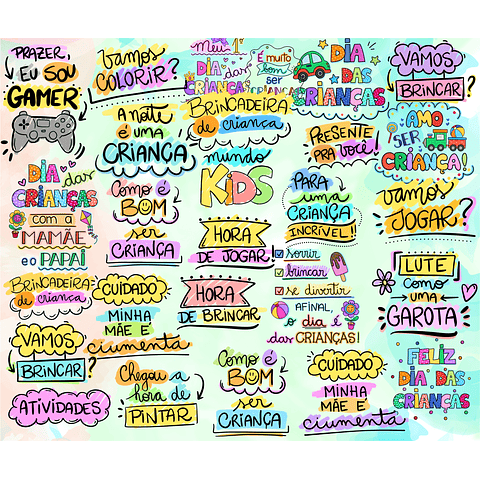 PRAZER,
EU SOU
GAMER
VAMOS
COLORIR?
A NOITE
É UMA
CRIANÇA
COMO É
BOM
SER
CRIANÇA
MEU 1º
DIA das
CRIANÇAS
É muito
bom
ser
CRIANÇA
DIA
DAS
CRIANÇAS
VAMOS
BRINCAR?
BRINCADEIRA
de crianca
mundo
KIDS
PRESENTE
PRA VOCÊ!
AMO
SER
CRIANÇA!
DIA das
CRIANÇAS
com a
MAMÃE
e o PAPAI
PARA
uma
CRIANÇA
INCRÍVEL!!
vamos
JOGAR?
HORA
DE JOGAR!
sorrir
brincar
se divertir
AFINAL,
o dia é
das CRIANÇAS!
LUTE
como
uma
GAROTA
BRINCADEIRA
de crianca
CUIDADO
MINHA
MÃE E
ciumenta
HORA
DE BRINCAR
VAMOS
BRINCAR?
ATIVIDADES
Chegou a
hora de
PINTAR
Como é
BOM
ser
CRIANÇA
CUIDADO
MINHA
MÃE E
ciumenta
FELIZ
DIA DAS
CRIANÇAS